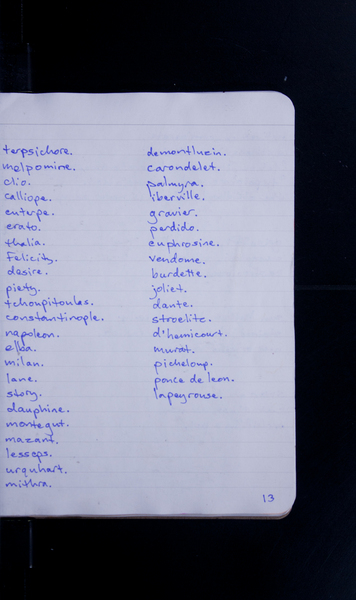 terpsichore.
melpomine.
clio.
calliope.
euterpe.
erato.
thalia.
felicity.
desire.
piety.
tchoupitoules.
constantinople.
napoleon.
elba.
milan.
lane.
story.
dauphine.
montegut.
mazant.
lesseps.
urquhart.
mithra.
demontluzin.
carondelet.
palmyra.
liberville.
gravier.
perdido.
euphrosine.
vendome.
burdette.
joliet.
dante.
stroelitz.
d'hemicourt.
murat.
picheloup.
ponce de leon.
lapeyrouse.
13